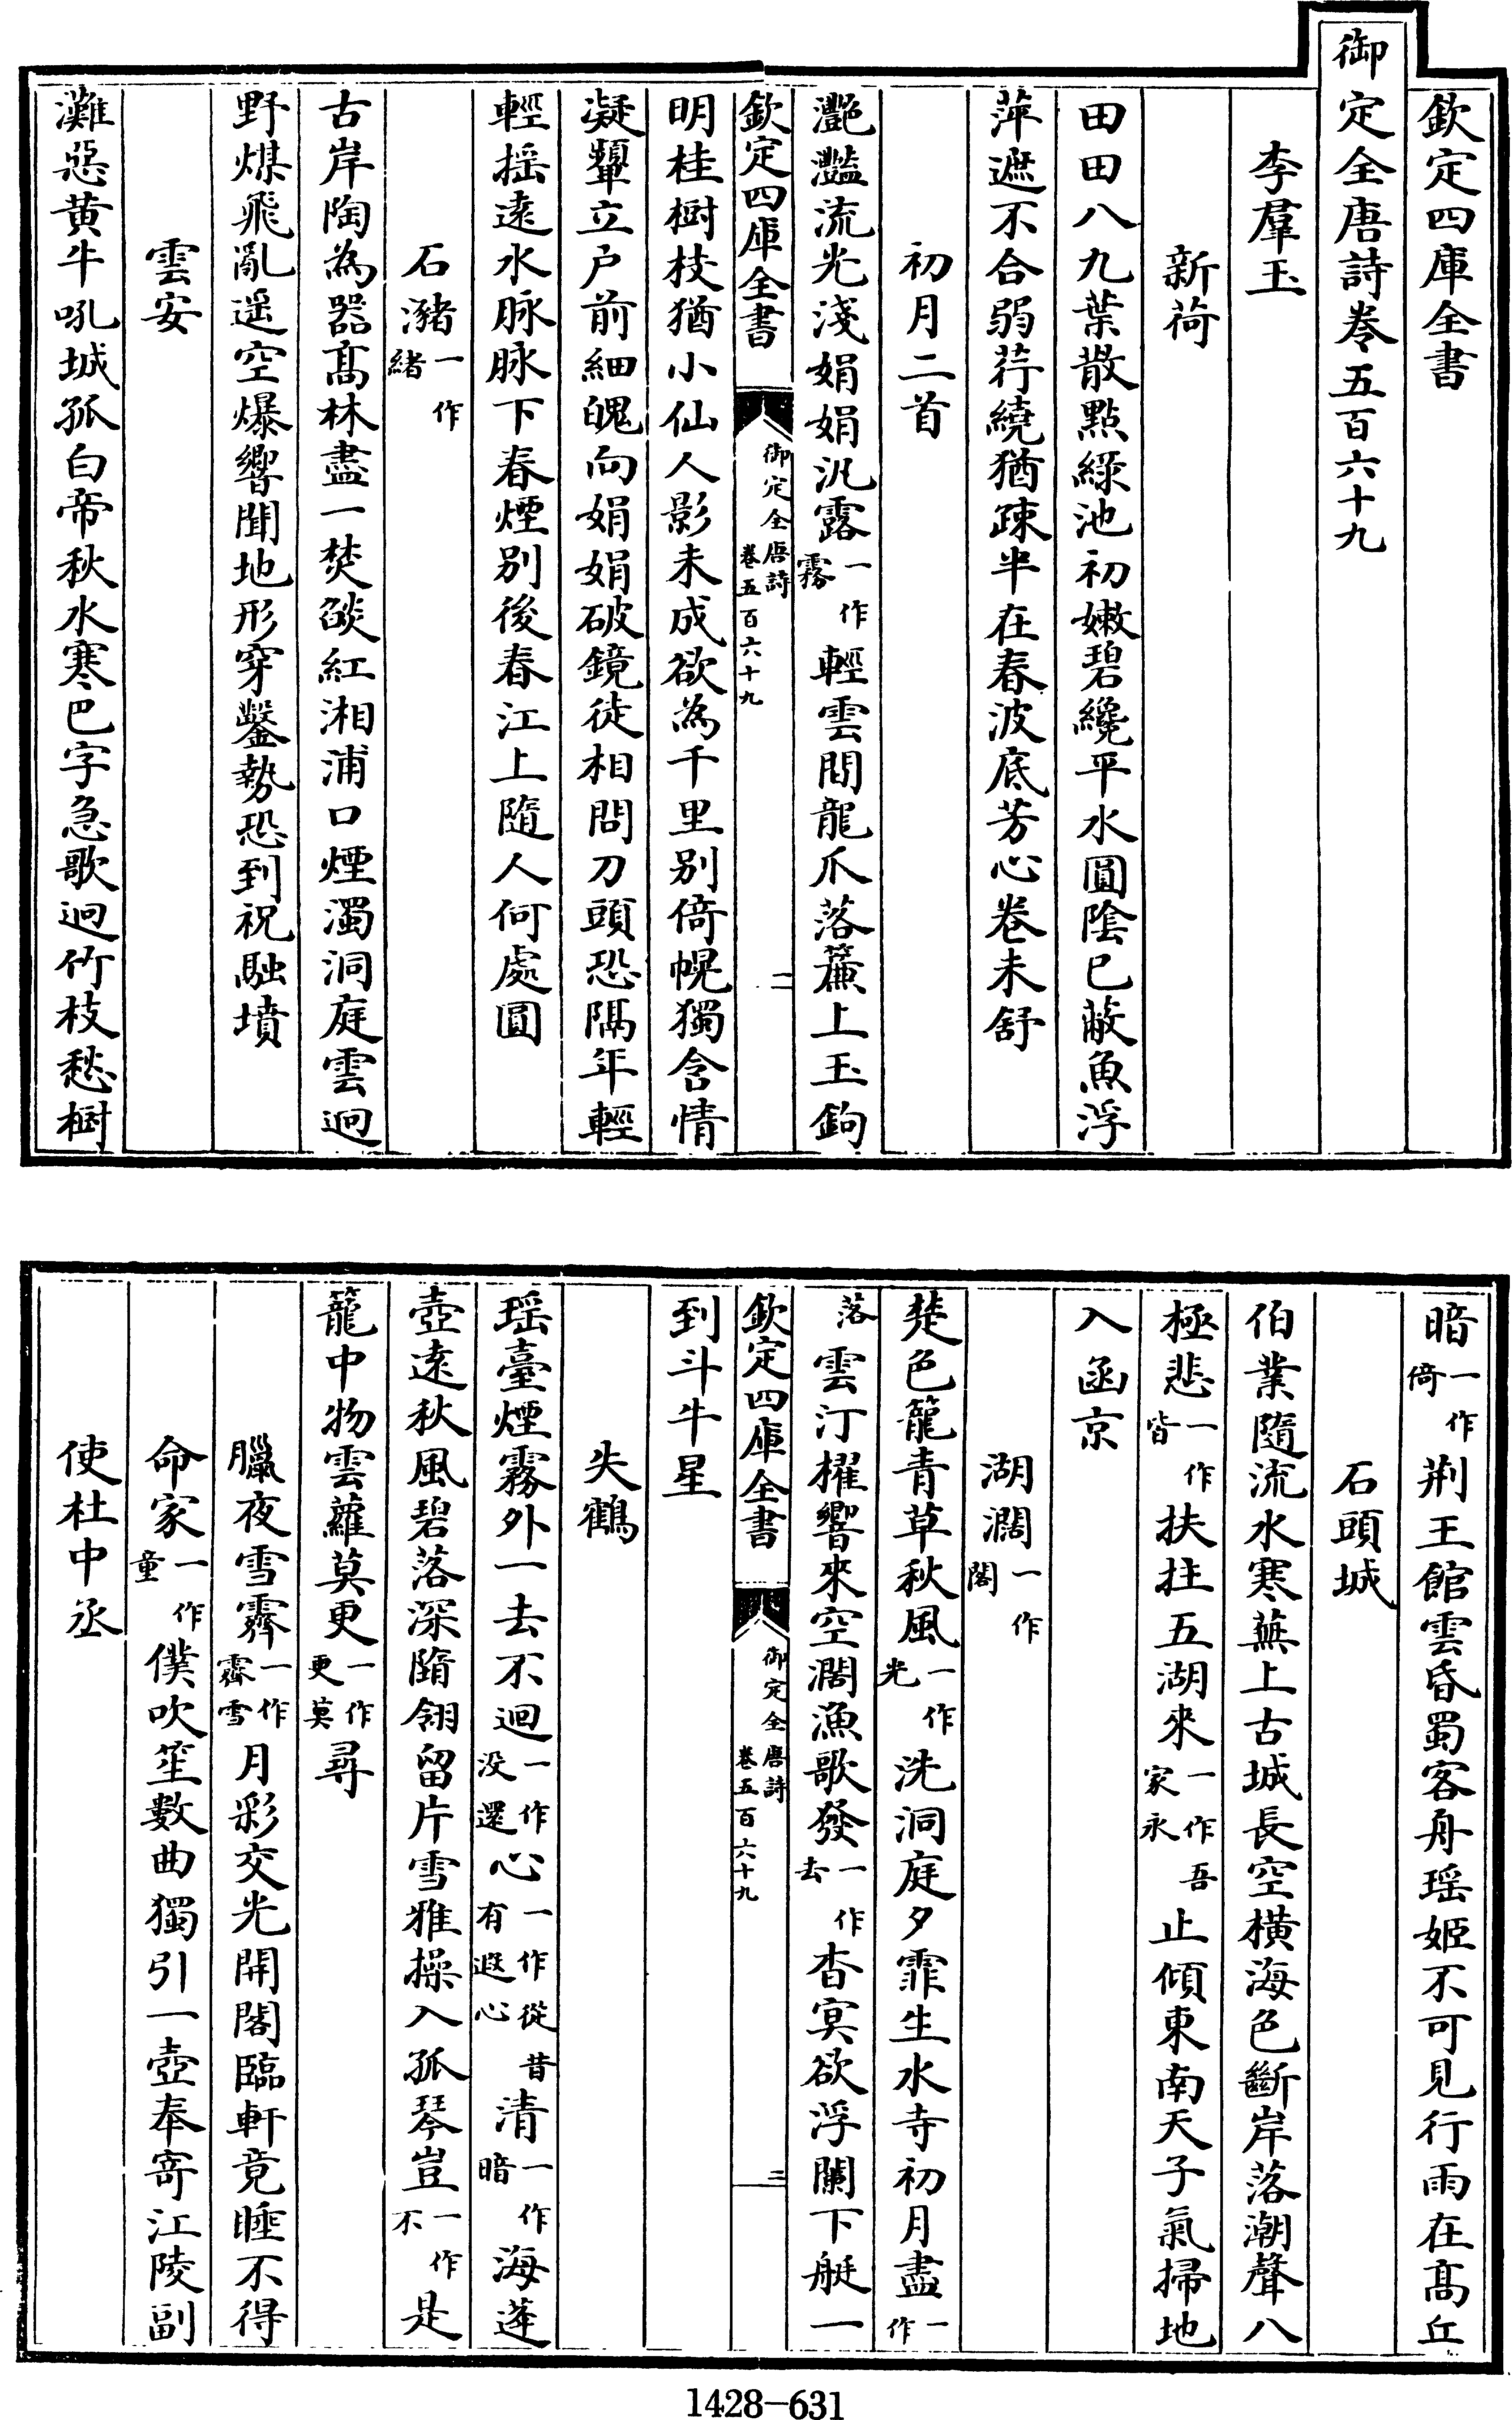 欽定四庫全書
御定全唐詩卷五百六十九
李羣玉
新荷
田田八九葉散點綠池初嫩碧纔平水圓陰已蔽魚浮
萍遮不合弱荇繞猶疎半在春波底芳心卷未舒
初月二首
灔灔流光淺娟娟汎露一作霧輕雲間龍爪落簾上玉鉤
欽定四庫全書 御定全唐詩卷五百六十九 二
明桂樹枝猶小仙人影未成欲為千里别倚幌獨含情
凝顰立戶前細魄向娟娟破鏡徒相問刀頭恐隔年輕
輕揺遠水脉脉下春煙别後春江上隨人何處圓
石瀦一作緒
古岸陶為器髙林盡一焚燄紅湘浦口煙濁洞庭雲迥
野煤飛亂遥空爆響聞地形穿鑿勢恐到祝融墳
雲安
灘惡黄牛吼城孤白帝秋水寒巴字急歌迥竹枝愁樹
暗一作倚荆王館雲昏蜀客舟瑶姬不可見行雨在髙丘
石頭城
伯業隨流水寒蕪上古城長空橫海色斷岸落潮聲八
極悲一作皆扶拄五湖來一作吾家永止傾東南天子氣掃地
入函京
湖濶一作閣
楚色籠青草秋風一作光洗洞庭夕霏生水寺初月盡一作
落雲汀櫂響來空濶漁歌發一作去杳冥欲浮闌下艇一
欽定四庫全書 御定全唐詩卷五百六十九 三
到斗牛星
失鶴
瑶臺煙霧外一去不迴一作没還心一作從昔有遐心清一作暗海蓬
壺遠秋風碧落深隋翎留片雪雅操入孤琴豈一作不是
籠中物雲蘿莫更一作更莫尋
臘夜雪霽一作霽雪月彩交光開閣臨軒竟睡不得
命家一作童僕吹笙數曲獨引一壺奉寄江陵副
使杜中丞
1428-631